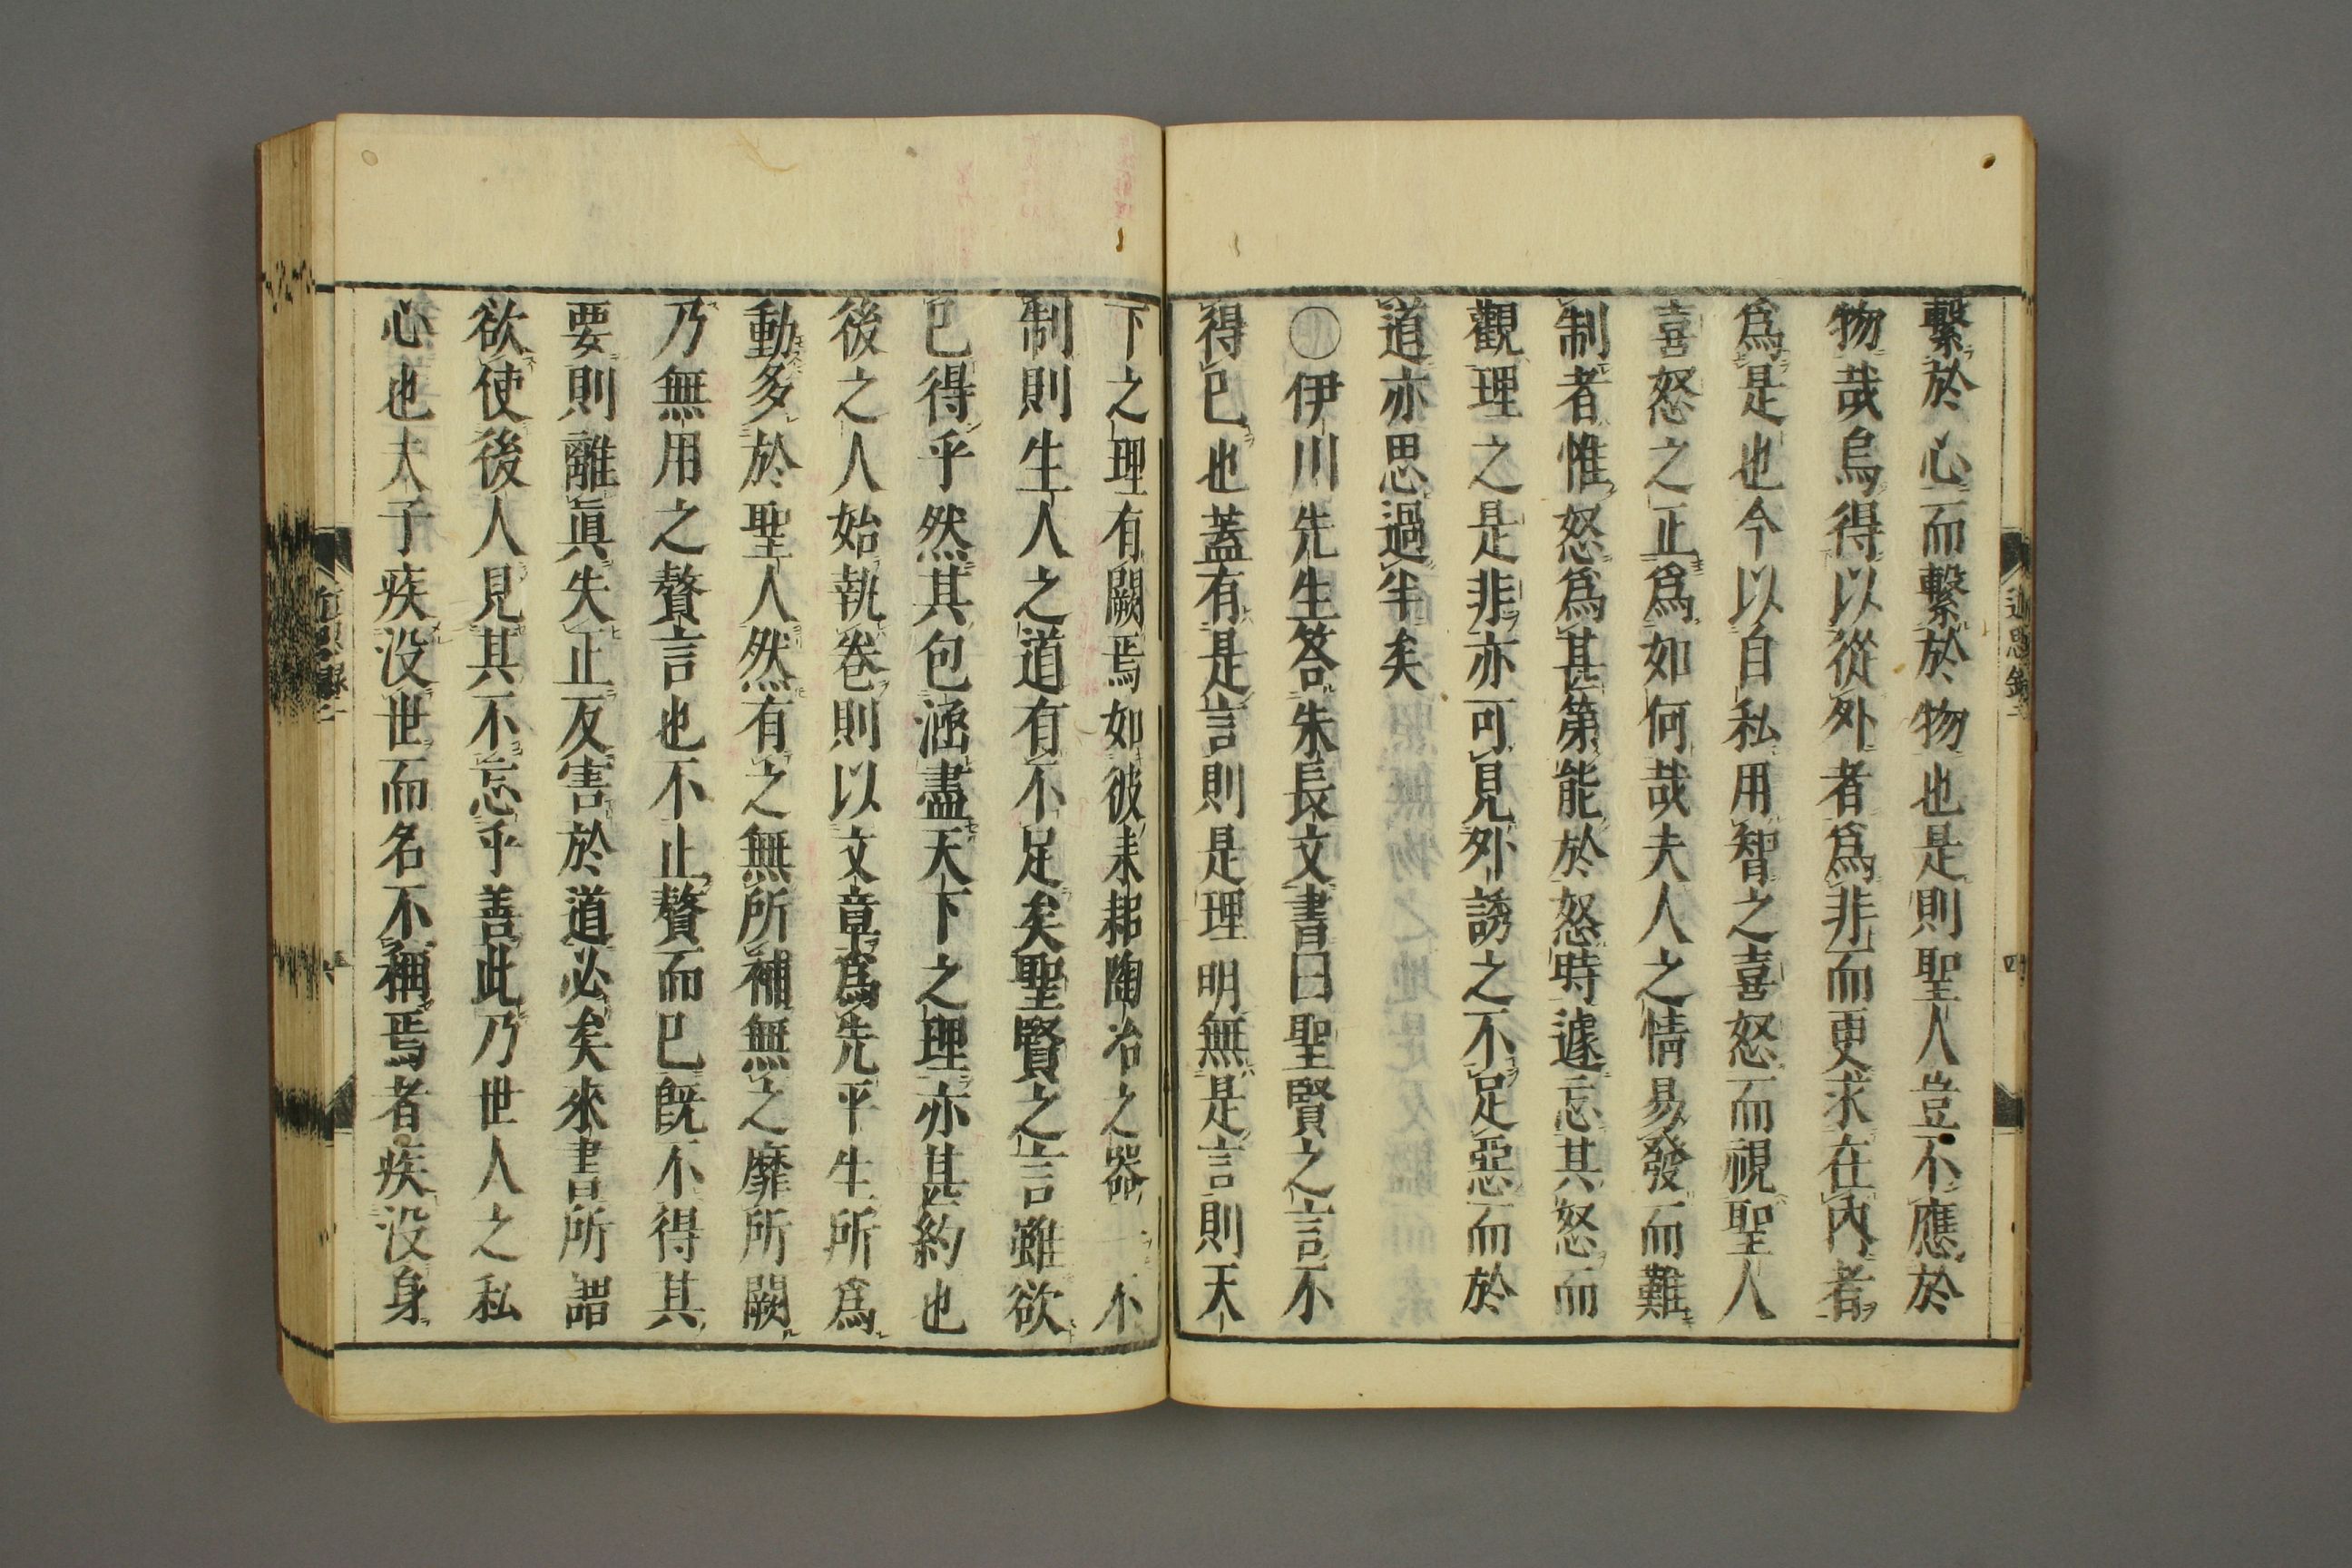 繋於心而繋於物也是則聖人豈不應於
物哉烏得以從外者爲非而更求在內者
爲是也今以自私用智之喜怒而視聖人
喜怒之正爲如何哉夫人之情易發而難
制者惟怒爲甚第能於怒時遽忘其怒而
觀理之是非亦可見外誘之不足惡而於
道亦思過半矣
○伊川先生答朱長文書曰聖賢之言不
得已也蓋有是言則是理明無是言則天
下之理有闕焉如彼耒耜陶冶之器一不
制則生人之道有不足矣聖賢之言雖欲
已得乎然其包涵盡天下之理亦甚約也
後之人始執卷則以文章爲先平生所爲
動多於聖人然有之無所補無之靡所闕
乃無用之贅言也不止贅而已旣不得其
要則離眞失正反害於道必矣來書所謂
欲使後人見其不忘乎善此乃世人之私
心也夫子疾没世而名不稱焉者疾没身
近思錄二
四